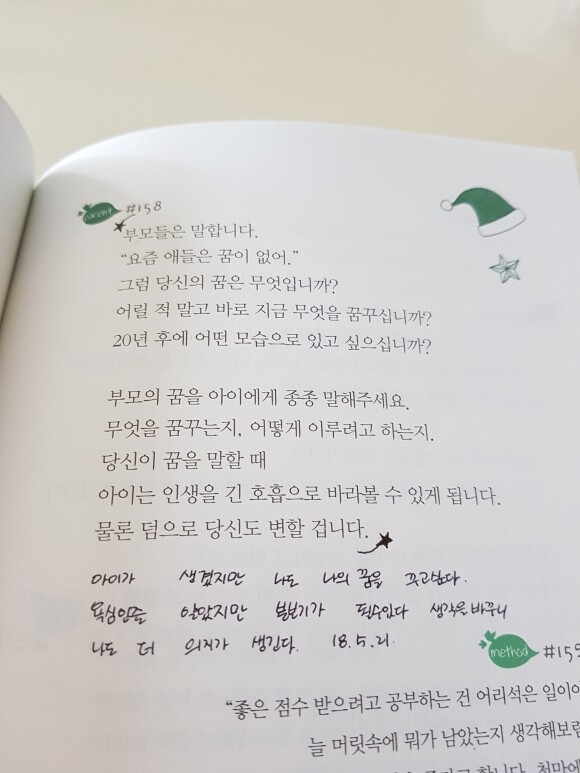 parent #158
부모들은 말합니다.
“요즘 애들은 꿈이 없어.”
그럼 당신의 꿈은 무엇입니까?
어릴 적 말고 바로 지금 무엇을 꿈꾸십니까?
20년 후에 어떤 모습으로 있고 싶으십니까?
부모의 꿈을 아이에게 종종 말해주세요.
무엇을 꿈꾸는지, 어떻게 이루려고 하는지.
당신이 꿈을 말할 때
아이는 인생을 긴 호흡으로 바라볼 수 있게 됩니다.
물론 덤으로 당신도 변할 겁니다.
아이가 생겼지만 나도 나의 꿈을 꾸고싶다.
욕심인줄 알았지만 필수있다 생각을 바꾸니
나도 더 의지가 생긴다. 18.5.21.
method #159
“좋은 점수 받으려고 공부하는 건 어리석은 일이야
늘 머릿속에 뭐가 남았는지 생각해보렴